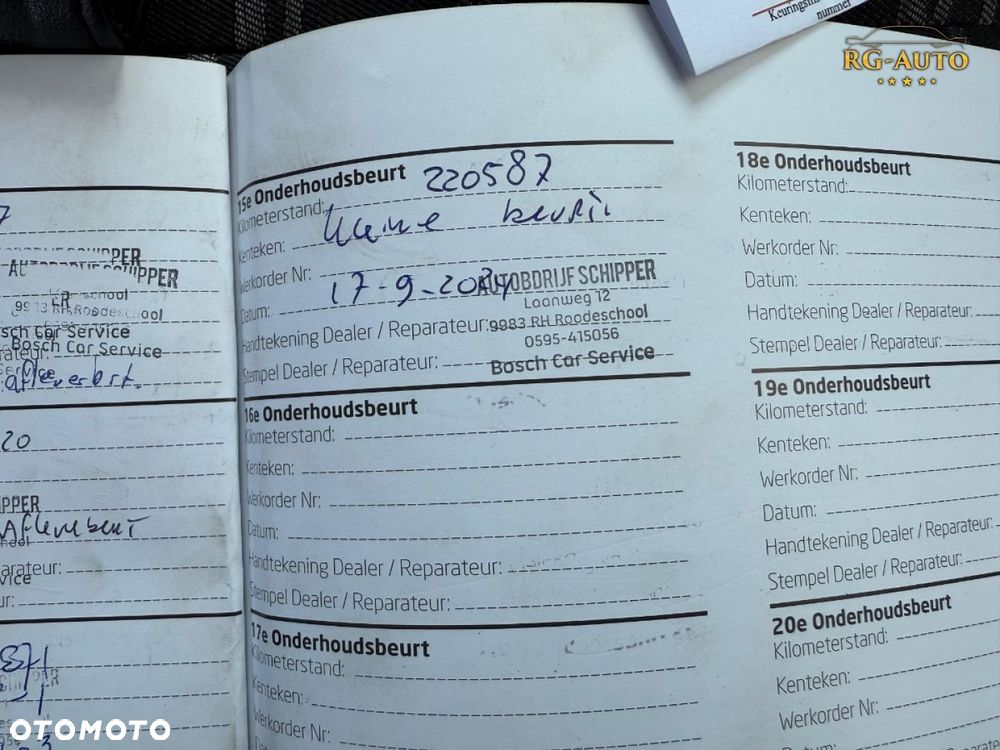 Keuringsin
nummer
RG-AUTO
7
SCHIPPER
AUTOBEDRIJF SCHIPPER
9983 RH Roodeschool
sch Car Service
Bosch Car Service
arateur:
20
PPER
arateur:
vice
ur:
871
15e Onderhoudsbeurt
Kilometerstand: 220587
Kenteken: kleine beurt
Werkorder Nr:
Datum: 17-9-2024
AUTOBDRIJF SCHIPPER
Laanweg 12
Handtekening Dealer / Reparateur:
9983 RH Roodeschool
0595-415056
Stempel Dealer / Reparateur:
Bosch Car Service
16e Onderhoudsbeurt
Kilometerstand:
Kenteken:
Werkorder Nr:
Datum:
Handtekening Dealer / Reparateur:
Stempel Dealer / Reparateur:
17e Onderhoudsbeurt
Kilometerstand:
Kenteken:
Werkorder Nr:
18e Onderhoudsbeurt
Kilometerstand:
Kenteken:
Werkorder Nr:
Datum:
Handtekening Dealer / Reparateur:
Stempel Dealer / Reparateur:
19e Onderhoudsbeurt
Kilometerstand:
Kenteken:
Werkorder Nr:
Datum:
Handtekening Dealer / Reparateur:
Stempel Dealer / Reparateur:
20e Onderhoudsbeurt
Kilometerstand:
Kenteken:
Werkorder Nr:
Datum:
OTOMOTO